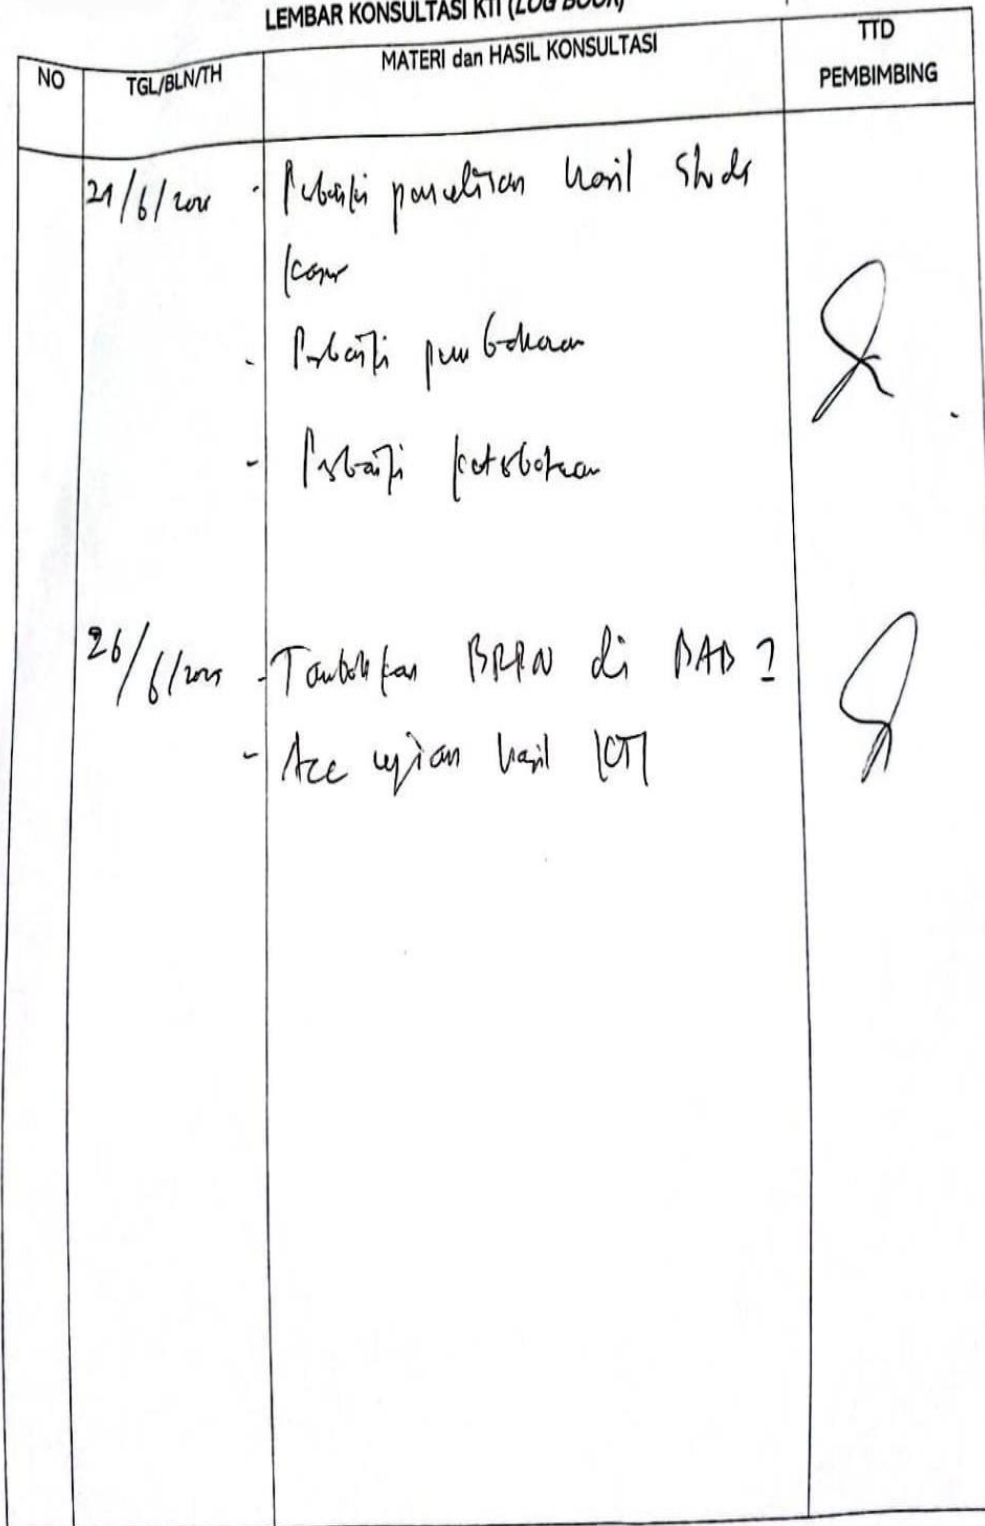 LEMBAR KONSULTASI KTI (LOG BOOK)
NO TGL/BLN/TH MATERI dan HASIL KONSULTASI TTD PEMBIMBING
21/6/ - Perbaiki penulisan hasil studi
kasus
- Perbaiki pembahasan
- Perbaiki keterbatasan
26/6/ - Tambahkan di BAB 2
- Acc ujian hasil KTI